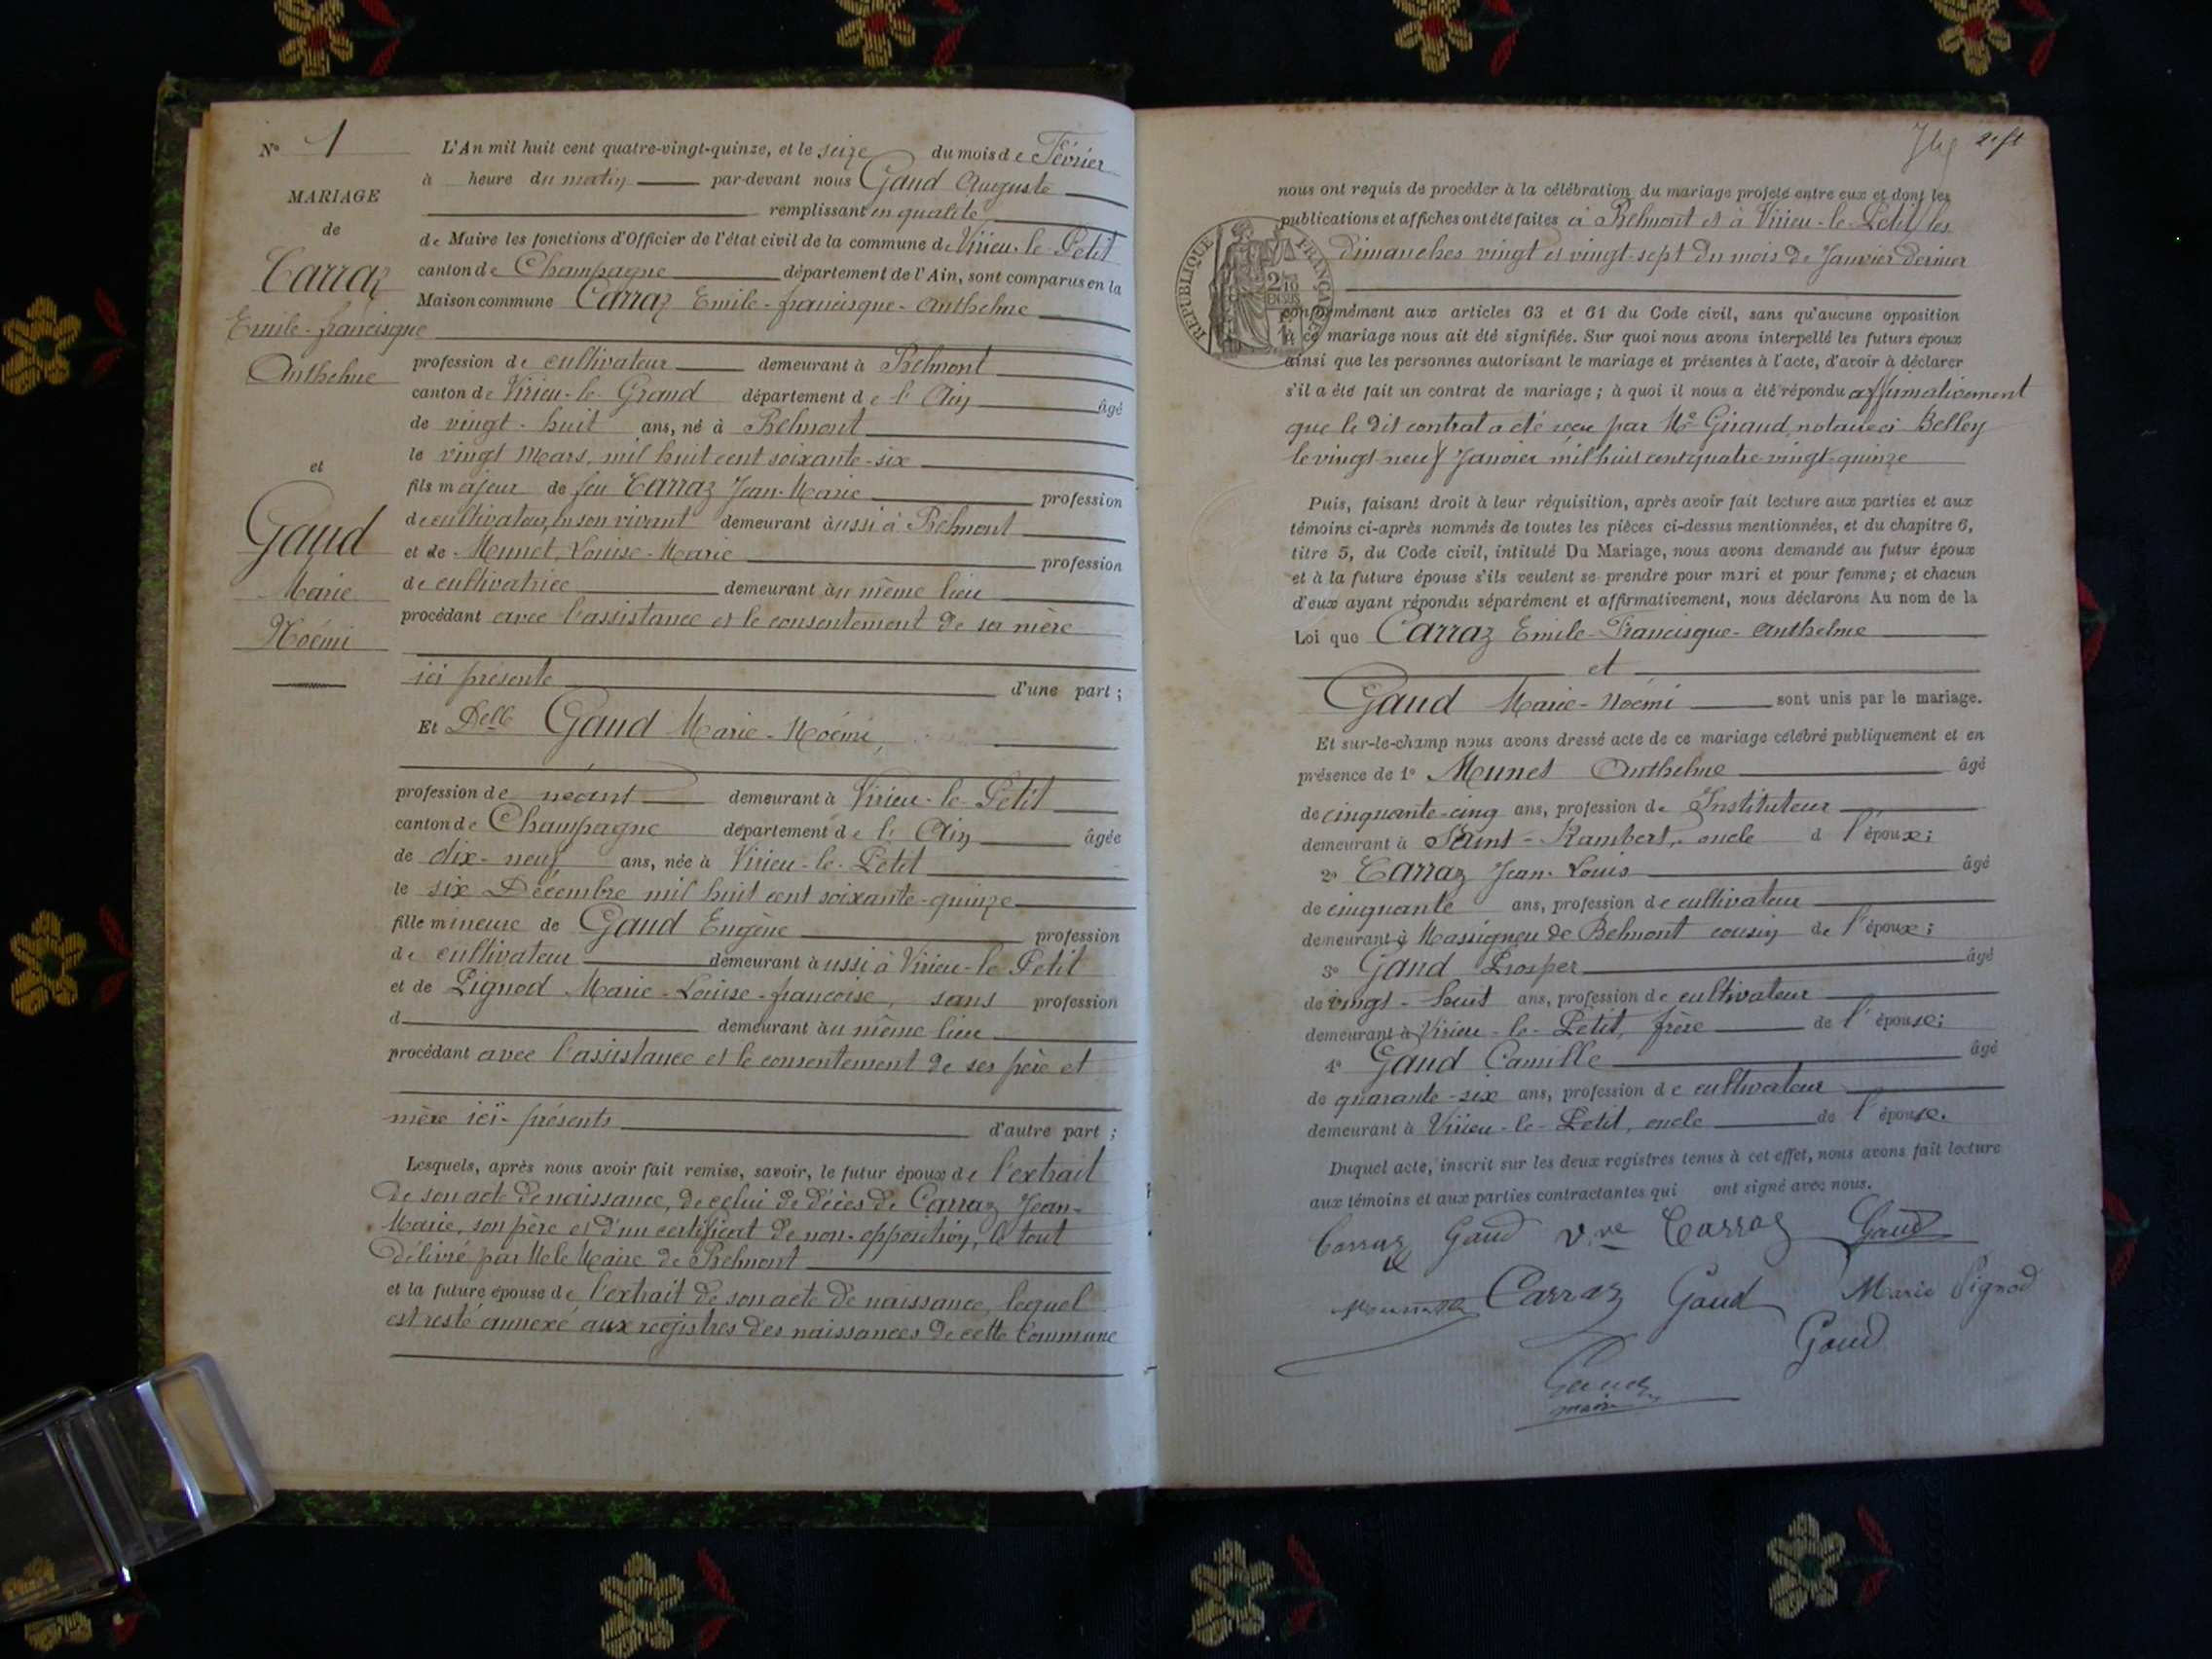 N° 1
MARIAGE
de
Carraz
Emile-francisque
Anthelme
et
Gaud
Marie
Noémi
L'An mil huit cent quatre-vingt-quinze, et le seize du mois de Février
à heure du matin par-devant nous Gaud Auguste
remplissant en qualité
de Maire les fonctions d'Officier de l'état civil de la commune de Virieu-le-Petit
canton de Champagne département de l'Ain, sont comparus en la
Maison commune Carraz Emile-francisque-Anthelme
profession de cultivateur demeurant à Belmont
canton de Virieu-le-Grand département de l'Ain âgé
de vingt-huit ans, né à Belmont
le vingt Mars, mil huit cent soixante-six
fils majeur de feu Carraz Jean-Marie profession
de cultivateur, en son vivant demeurant aussi à Belmont
et de Munet, Louise-Marie profession
de cultivatrice demeurant au même lieu
procédant avec l'assistance et le consentement de sa mère
ici présente d'une part ;
Et Delle Gaud Marie-Noémi,
profession de néant demeurant à Virieu-le-Petit
canton de Champagne département de l'Ain âgée
de dix-neuf ans, née à Virieu-le-Petit
le six Décembre mil huit cent soixante-quinze
fille mineure de Gaud Eugène profession
de cultivateur demeurant aussi à Virieu-le-Petit
et de Pignod Marie-Louise-françoise, sans profession
d demeurant au même lieu
procédant avec l'assistance et le consentement de ses père et
mère ici-présents d'autre part ;
Lesquels, après nous avoir fait remise, savoir, le futur époux de l'extrait
de son acte de naissance, de celui de décès de Carraz Jean-
Marie, son père et d'un certificat de non-opposition, le tout
délivré par M le Maire de Belmont
et la future épouse de l'extrait de son acte de naissance, lequel
est resté annexé aux registres des naissances de cette Commune
2e ft
nous ont requis de procéder à la célébration du mariage projeté entre eux et dont les
publications et affiches ont été faites à Belmont et à Virieu-le-Petit les
dimanches vingt et vingt-sept du mois de Janvier dernier
REPUBLIQUE FRANÇAISE
2/10 EN SUS
conformément aux articles 63 et 64 du Code civil, sans qu'aucune opposition
à ce mariage nous ait été signifiée. Sur quoi nous avons interpellé les futurs époux
ainsi que les personnes autorisant le mariage et présentes à l'acte, d'avoir à déclarer
s'il a été fait un contrat de mariage ; à quoi il nous a été répondu affirmativement
que le dit contrat a été reçu par Me Giraud, notaire à Belley
le vingt-neuf Janvier mil huit cent quatre-vingt-quinze
Puis, faisant droit à leur réquisition, après avoir fait lecture aux parties et aux
témoins ci-après nommés de toutes les pièces ci-dessus mentionnées, et du chapitre 6,
titre 5, du Code civil, intitulé Du Mariage, nous avons demandé au futur époux
et à la future épouse s'ils veulent se prendre pour mari et pour femme ; et chacun
d'eux ayant répondu séparément et affirmativement, nous déclarons Au nom de la
Loi que Carraz Emile-Francisque-Anthelme
et
Gaud Marie-Noémi sont unis par le mariage.
Et sur-le-champ nous avons dressé acte de ce mariage célébré publiquement et en
présence de 1° Munet Anthelme âgé
de cinquante-cinq ans, profession de Instituteur
demeurant à Saint-Rambert, oncle d l'époux ;
2° Carraz Jean-Louis âgé
de cinquante ans, profession de cultivateur
demeurant à Massignieu de Belmont cousin de l'époux ;
3° Gaud Prosper âgé
de vingt-huit ans, profession de cultivateur
demeurant à Virieu-le-Petit, frère de l'épouse ;
4° Gaud Camille âgé
de quarante-six ans, profession de cultivateur
demeurant à Virieu-le-Petit, oncle de l'épouse.
Duquel acte, inscrit sur les deux registres tenus à cet effet, nous avons fait lecture
aux témoins et aux parties contractantes qui ont signé avec nous.
Carraz Gaud Vve Carraz Gaud
Carraz Gaud Marie Pignod
Gaud
Gaud
maire